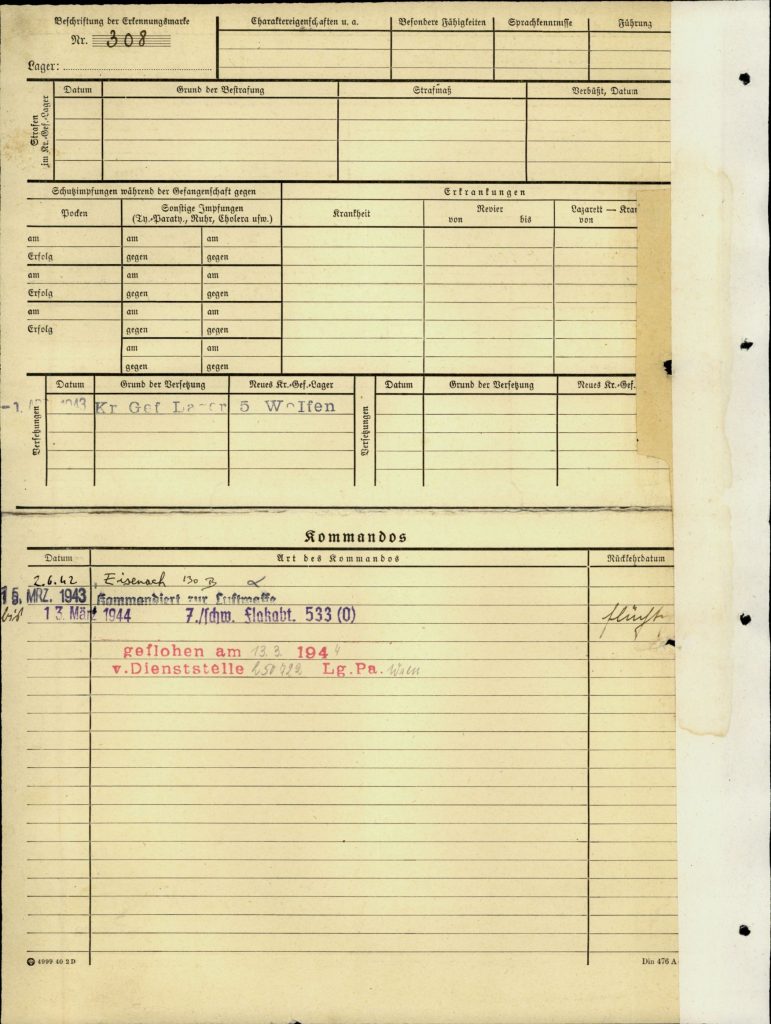 Beschriftung der Erkennungsmarke
Nr. 308
Lager:
Charaktereigenschaften u. a.
Besondere Fähigkeiten
Sprachkenntnisse
Führung
Strafen im Kr.-Gef.-Lager
Datum
Grund der Bestrafung
Strafmaß
Verbüßt, Datum
Schutzimpfungen während der Gefangenschaft gegen
Erkrankungen
Pocken
Sonstige Impfungen
(Ty.-Paraty., Ruhr, Cholera usw.)
Krankheit
Revier
von bis
Lazarett — Kran
von
am am am
Erfolg gegen gegen
am am am
Erfolg gegen gegen
am am am
Erfolg gegen gegen
am am
gegen gegen
Versetzungen
Datum
Grund der Versetzung
Neues Kr.-Gef.-Lager
Versetzungen
Datum
Grund der Versetzung
Neues Kr.-Gef.
-1. 1943 Kr Gef Lager 5 Wolfen
Kommandos
Datum
Art des Kommandos
Rückkehrdatum
2.6.42 Eisenach 130 B
15. MRZ. 1943 Kommandiert zur Luftwaffe
bis 13. März 1944 7./schw. Flakabt. 533 (O)
geflohen am 13. 3. 1944
v. Dienststelle Lg. Pa.
4999 40 2 D
Din 476 A